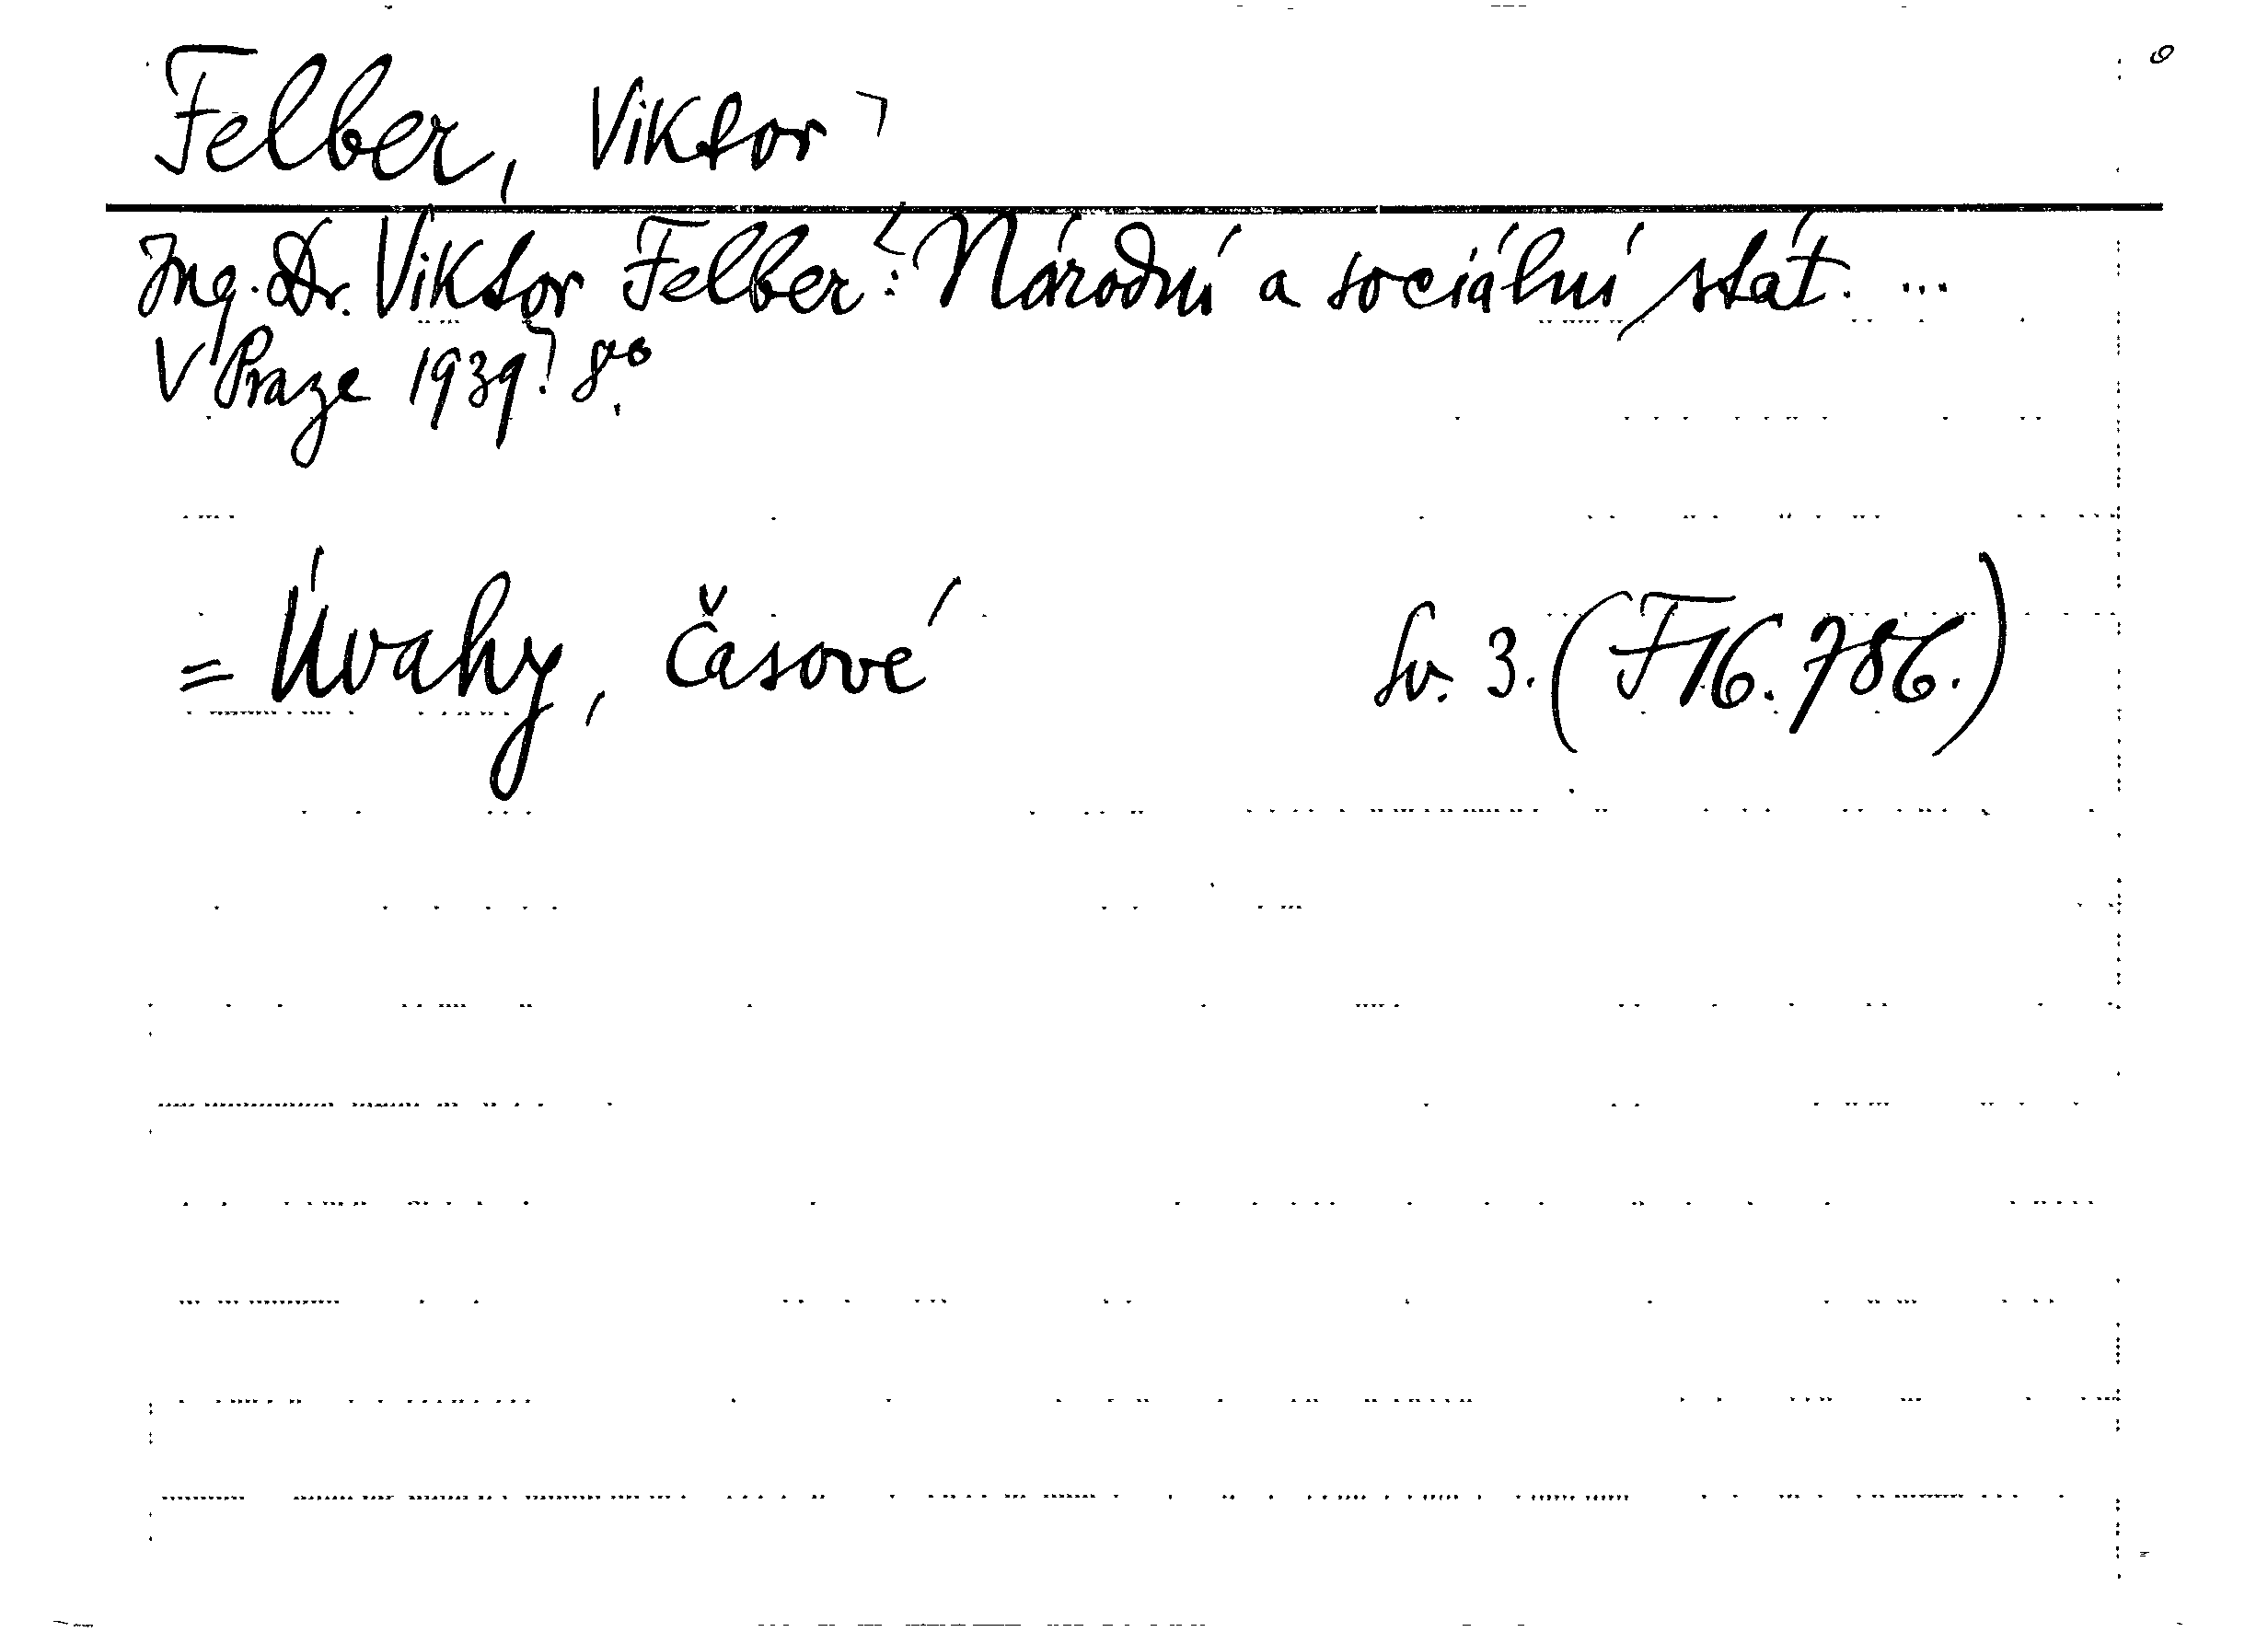 Felber, Viktor
Ing. Dr. Viktor Felber: Národní a sociální stát. ...
V Praze 1939. 8vo.
= Úvahy, Časové Sv. 3. (F 16.786.)